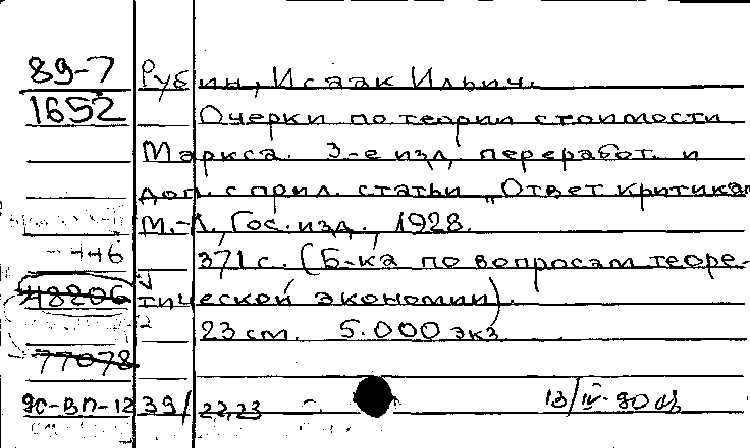 89-7 Рубин, Исаак Ильич.
1652 Очерки по теории стоимости
Маркса. 3-е изд, переработ. и
доп. с прил. статьи „Ответ критикам
М.-Л., Гос. изд., 1928.
446 371 с. (Б-ка по вопросам теоре-
48206 тической экономии).
23 см. 5.000 экз
77078
90-ВП-12 39/ 22,23 13/IV-90